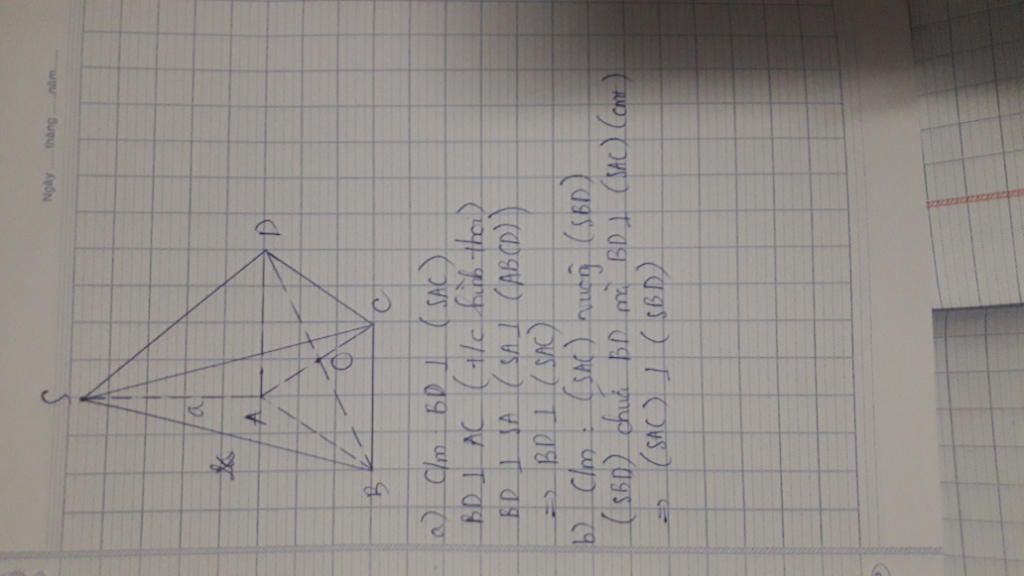 Ngày ..... tháng ..... năm.....
S
a
A
D
O
B
C
a) C/m BD ⊥ (SAC)
BD ⊥ AC (t/c hình thoi)
BD ⊥ SA (SA ⊥ (ABCD))
=> BD ⊥ (SAC)
b) C/m : (SAC) vuông (SBD)
(SBD) chứa BD mà BD ⊥ (SAC) (cmt)
=> (SAC) ⊥ (SBD)